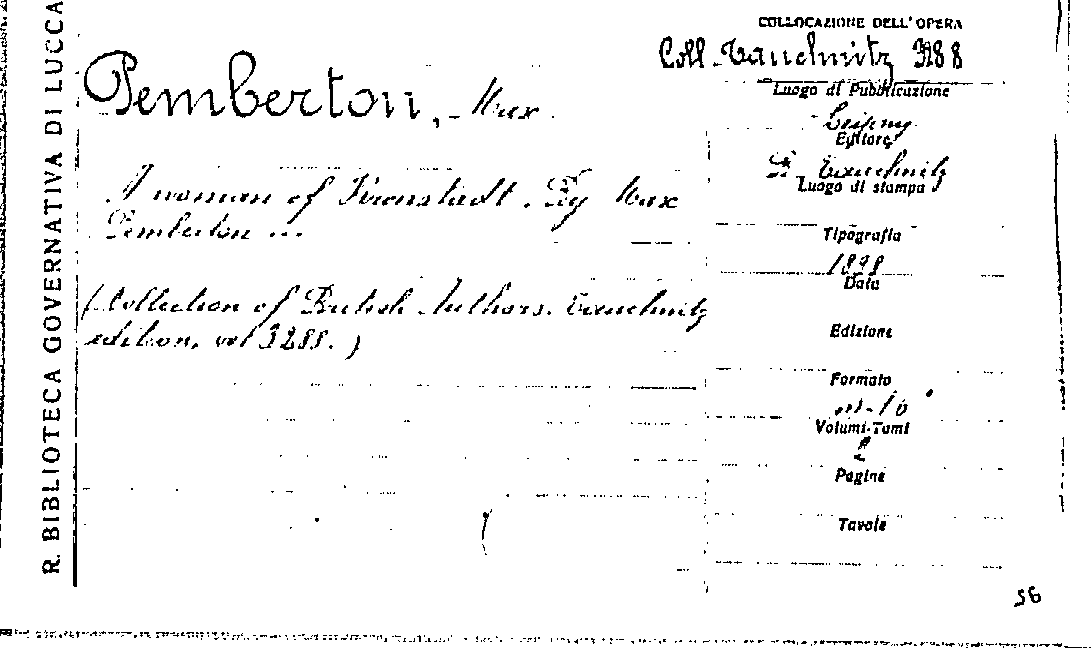 R. BIBLIOTECA GOVERNATIVA DI LUCCA
COLLOCAZIONE DELL'OPERA
Coll. Tauchnitz 3288
Pemberton, Max
Luogo di Pubblicazione
Leipzig
Editore
B. Tauchnitz
Luogo di stampa
A woman of Kronstadt. By Max
Pemberton ...
Tipografia
1898
Data
(Collection of British Authors. Tauchnitz
edition, vol 3288.)
Edizione
Formato
in-16
Volumi-Tomi
Pagine
Tavole
56